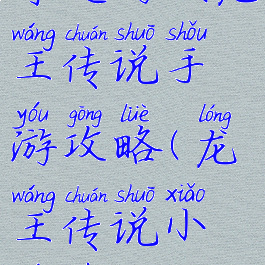 wáng chuán shuō shǒu
王传说手
yóu gōng lüè lóng
游攻略(龙
wáng chuán shuō xiǎo
王传说小